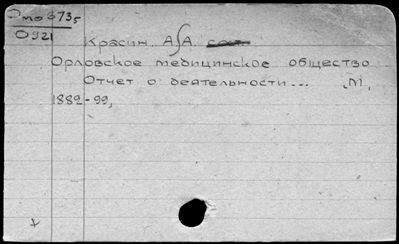 Эmo 673₅
О921
Красин, А∫А.
Орловское медицинское общество
Отчет о деятельности... М,
1882-99,